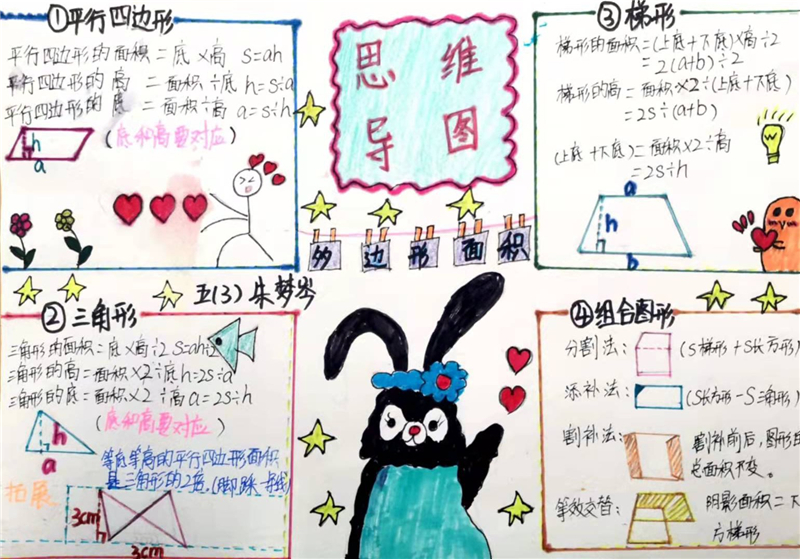 ①平行四边形
平行四边形的面积=底×高 s=ah
平行四边形的高=面积÷底 h=s÷a
平行四边形的底=面积÷高 a=s÷h
(底和高要对应)
h
a
思维
导图
多边形面积
③梯形
梯形的面积=(上底+下底)×高÷2
=2(a+b)÷2
梯形的高=面积×2÷(上底+下底)
=2s÷(a+b)
(上底+下底)=面积×2÷高
=2s÷h
a
h
b
五(3) 朱梦岑
②三角形
三角形的面积=底×高÷2 s=ah÷2
三角形的高=面积×2÷底 h=2s÷a
三角形的底=面积×2÷高 a=2s÷h
(底和高要对应)
h
a
等底等高的平行四边形面积
是三角形的2倍.
拓展
3cm
3cm
④组合图形
分割法:
(S梯形+S长方形)
添补法:
(S长方形-S三角形)
割补法:
割补前后,图形的
总面积不变。
等效交替:
阴影面积=下
方梯形